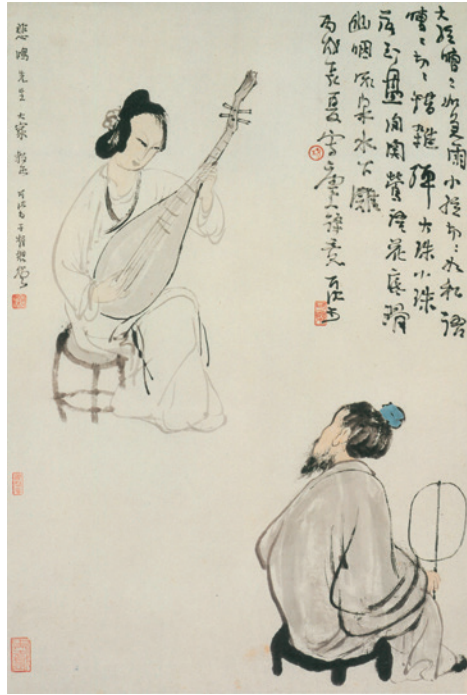 大絃嘈〻如急雨小絃切〻如私語
嘈〻切〻錯雜彈大珠小珠
落玉盤間關鶯語花底滑
幽咽流泉水下灘
丙戌長夏寫 可染
悲鴻先生大家教正